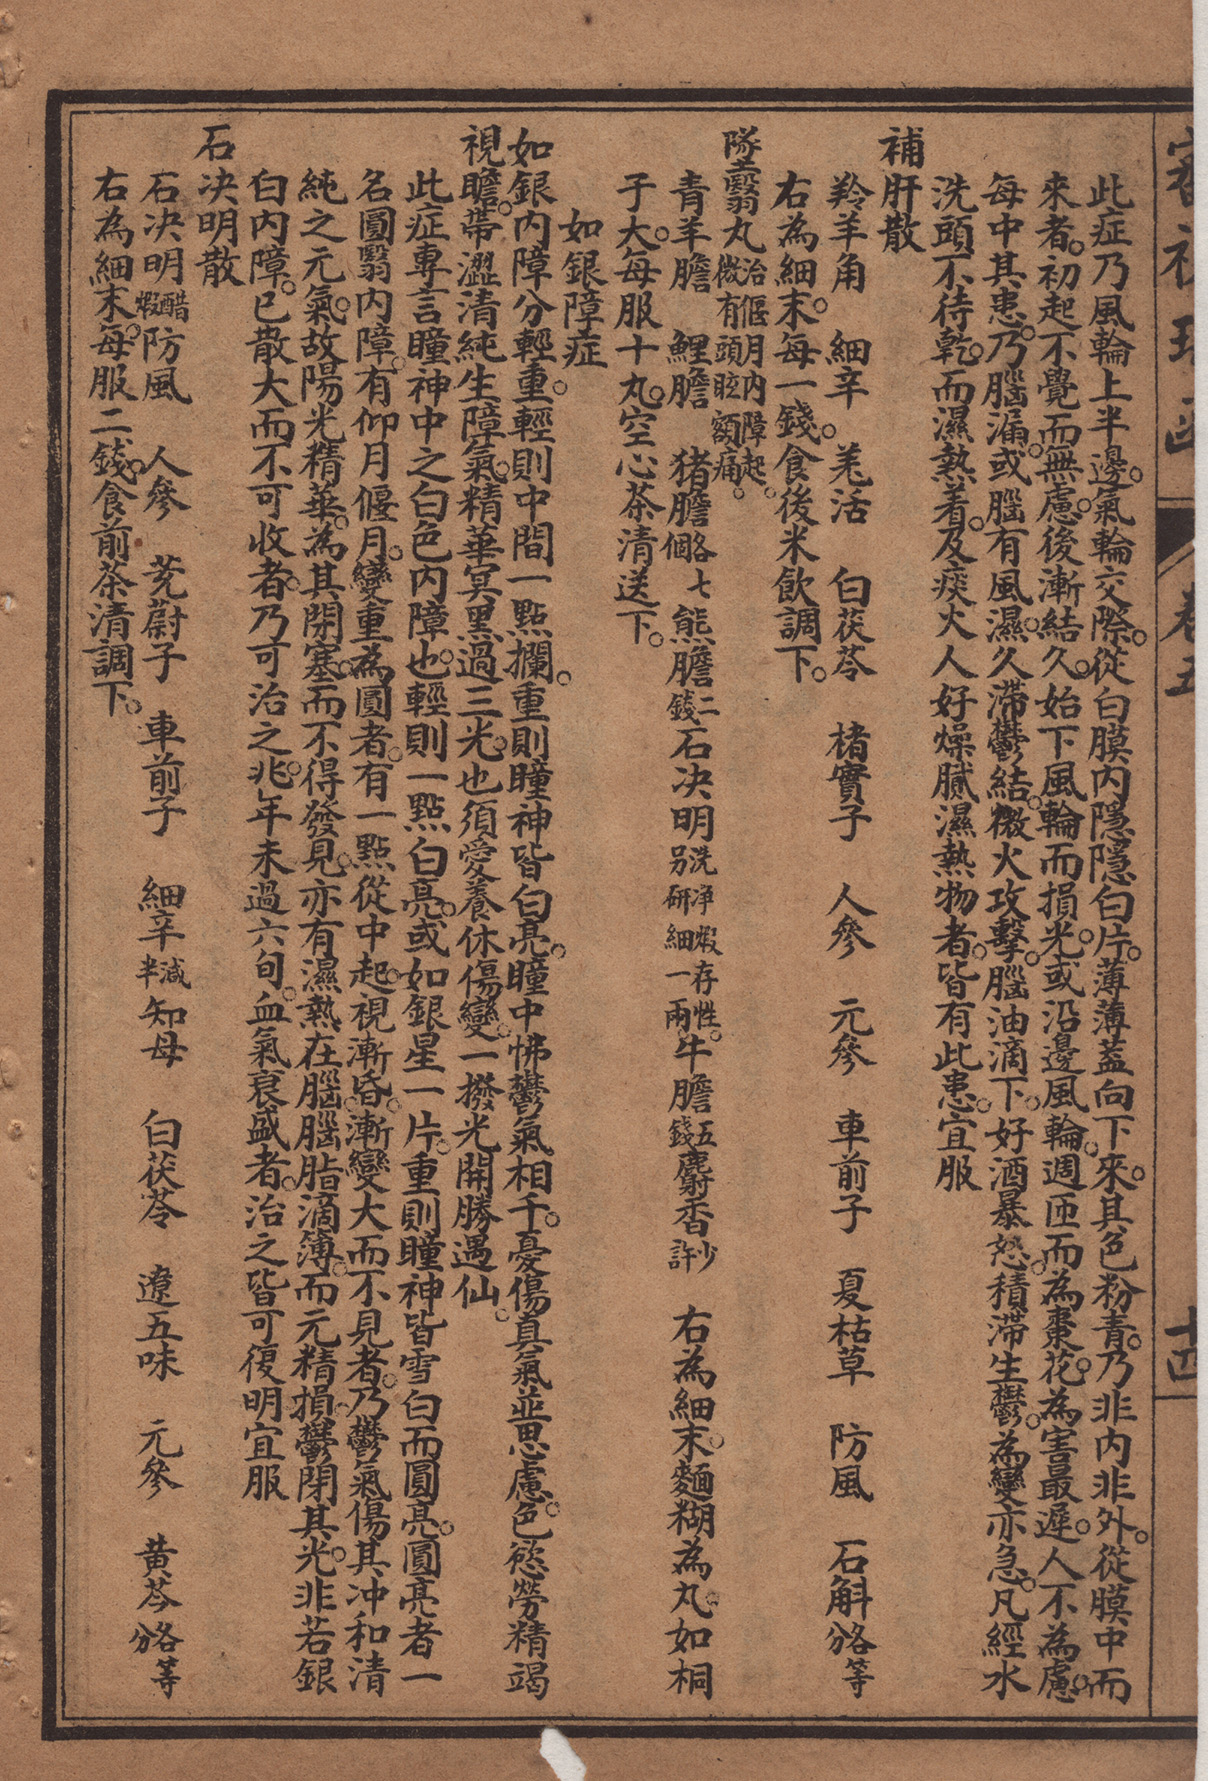 審視瑤函 卷五 十四
此症乃風輪上半邊。氣輪交際。從白膜內隱隱白片。薄薄蓋向下來。其色粉青。乃非內非外。從膜中而
來者。初起不覺而無慮。後漸結久。始下風輪而損光。或沿邊風輪週匝而為棗花。為害最遲。人不為慮。
每中其患。乃腦漏。或腦有風濕。久滯鬱結。微火攻擊。腦油滴下。好酒暴怒。積滯生鬱。為變亦急。凡經水
洗頭不待乾。而濕熱著。及痰火人好燥膩濕熱物者。皆有此患。宜服
補肝散
羚羊角 細辛 羌活 白茯苓 楮實子 人參 元參 車前子 夏枯草 防風 石斛各等分
右為細末。每一錢。食後米飲調下。
墜翳丸治偃月內障起。微有頭眩額痛。
青羊膽 鯉膽 猪膽各七個 熊膽二錢 石决明洗净煅存性。另研細一兩 牛膽五錢 麝香少許 右為細末。麵糊為丸。如桐
子大。每服十丸。空心茶清送下。
如銀障症
如銀內障分輕重。輕則中間一點攔。重則瞳神皆白亮。瞳中怫鬱氣相干。憂傷真氣並思慮。色慾勞精竭
視瞻。帶澀清純生障氣。精華冥黑過三光。也須愛養休傷變。一撥光開勝遇仙。
此症專言瞳神中之白色內障也。輕則一點白亮。或如銀星一片。重則瞳神皆雪白而圓亮。圓亮者一
名圓翳內障。有仰月偃月。變重為圓者。有一點從中起。視漸昏。漸變大而不見者。乃鬱氣傷其冲和清
純之元氣。故陽光精華。為其閉塞。而不得發見。亦有濕熱在腦。腦脂滴簿。而元精損鬱閉其光。非若銀
白內障。已散大而不可收者。乃可治之。兆年未過六旬。血氣衰盛者。治之皆可復明。宜服
石决明散
石决明醋煅 防風 人參 茺蔚子 車前子 細辛減半 知母 白茯苓 遼五味 元參 黃芩各等分
右為細末。每服二錢。食前茶清調下。